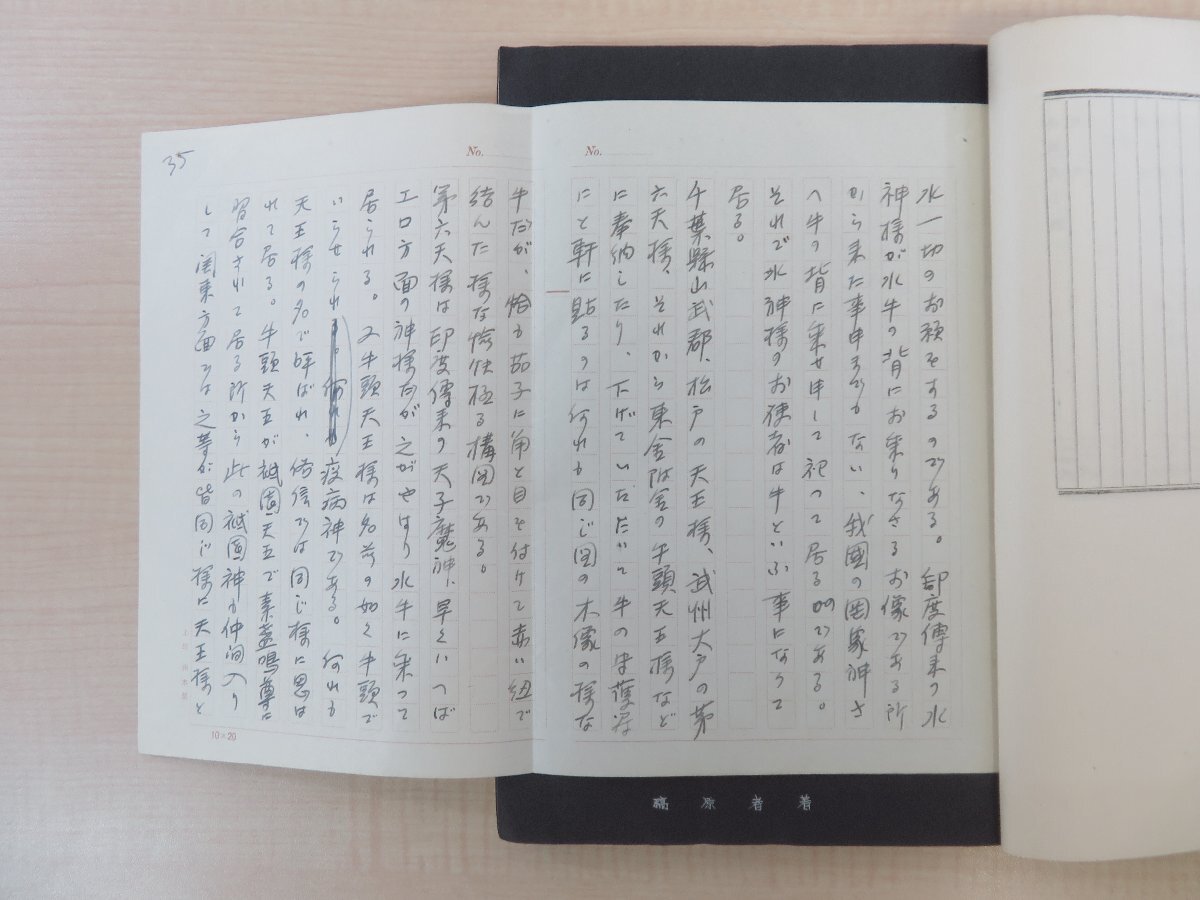 35
No.
No.
水一切のお願をするのである。印度傳来の水
神様が水牛の背にお乗りなさるお像である所
から来た事申すまでもない、我國の罔象神さ
へ牛の背に乗せ申して祀つて居る如である。
それで水神様のお使者は牛といふ事になつて
居る。
千葉縣山武郡、松戸の天王様、武州大戸の第
六天様、それから東金附近の牛頭天王様など
に奉納したり、下げていただいて牛の守護
にと軒に貼るのは何れも同じ図の木像の様な
牛だが、恰も茄子に角と目を付けて赤い紐で
結んだ様な愉快極る構図である。
第六天様は印度傳来の天子魔神、早くいへば
エロ方面の神様だが之がやはり水牛に乗つて
居られる。又牛頭天王様は名前の如く牛頭で
いらせられ疫病神である。何れも
天王様の名で呼ばれ、俗信では同じ様に思は
れて居る。牛頭天王が祇園天王で素盞鳴尊に
習合されて居る所から此の祇園神も仲間入り
して関東方面では之等が皆同じ様に天王様と
10×20
著者原稿